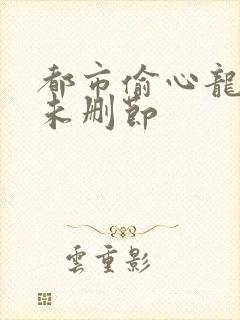 都市偷心龍
未删節
雲重影